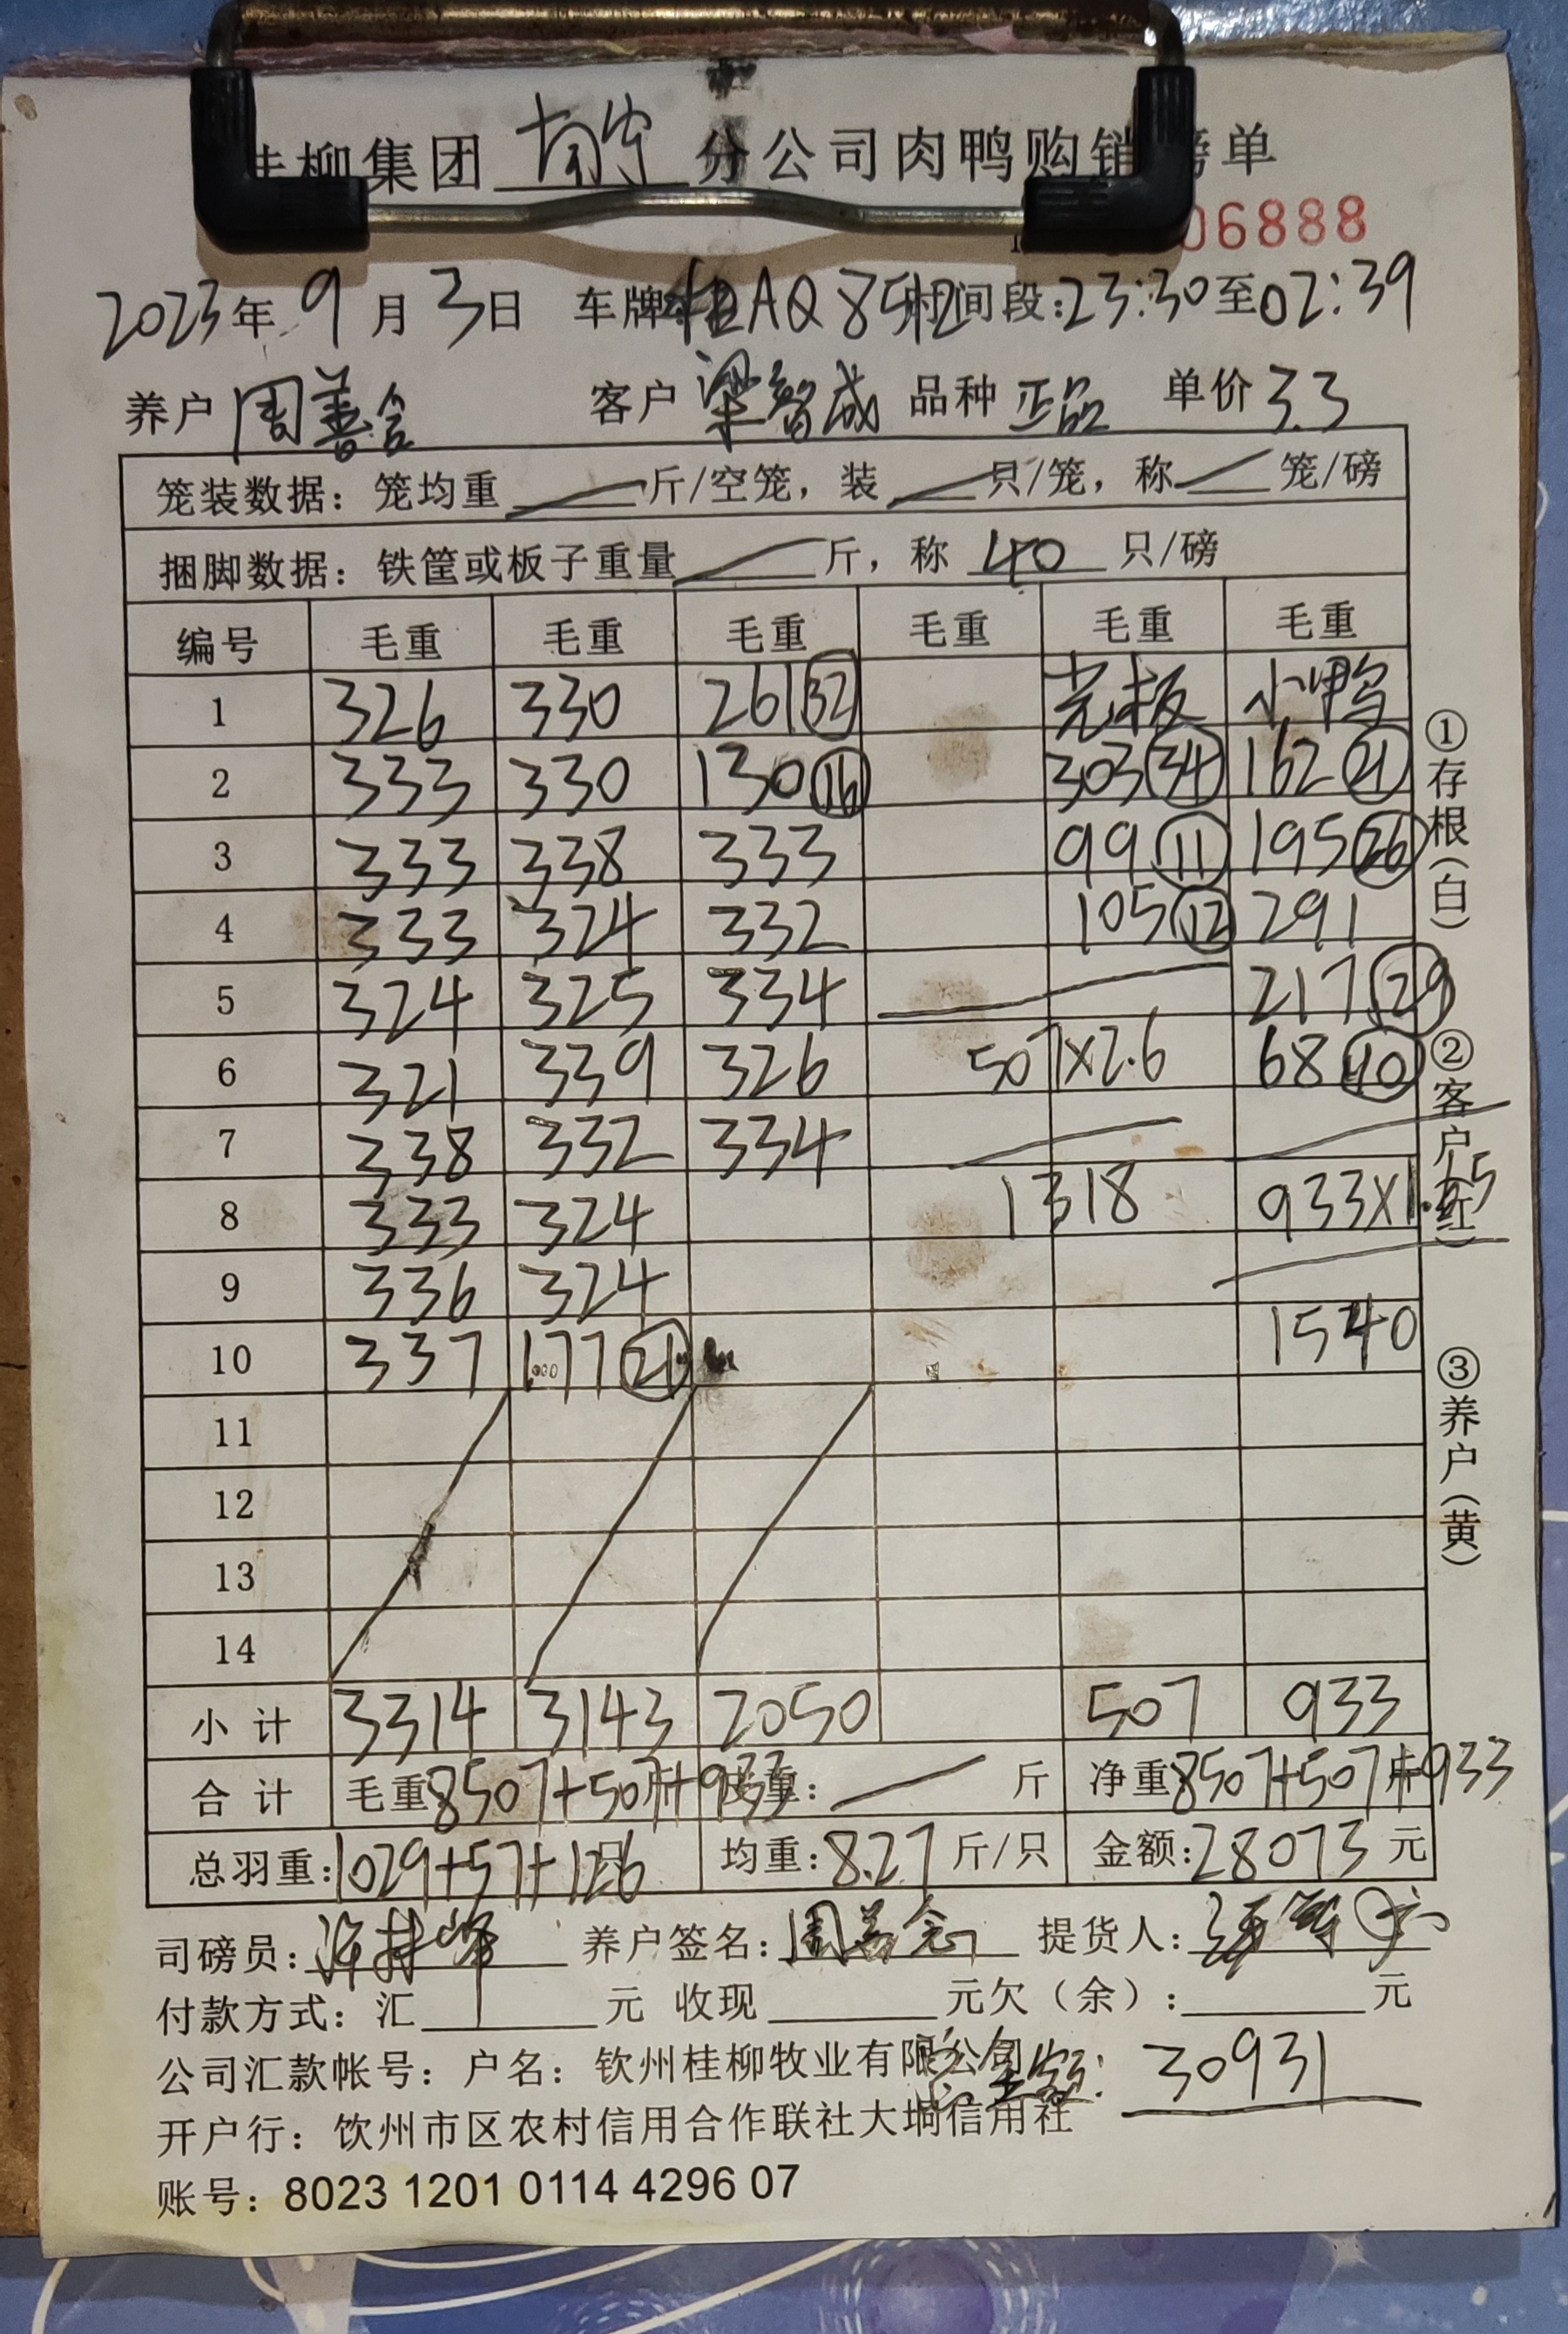 桂柳集团 南宁 分公司肉鸭购销磅单
06888
2023年 9月 3日 车牌 桂AQ8512 时间段:23:30至02:39
养户 周善念 客户 梁智成 品种 正品 单价 3.3
笼装数据：笼均重 斤/空笼，装 只/笼，称 笼/磅
捆脚数据：铁筐或板子重量 斤，称 40 只/磅
编号 毛重 毛重 毛重 毛重 毛重 毛重
1 326 330 261 32 光板 小鸭
2 333 330 130 16 303 34 162 21
3 333 338 333 99 11 195 26
4 333 324 332 105 12 291
5 324 325 334 217 29
6 321 339 326 507×2.6 68 10
7 338 332 334
8 333 324 1318 933×1.65
9 336 324
10 337 177 21 1540
11
12
13
14
小计 3314 3143 2050 507 933
合计 毛重8507+507+933斤 皮重: 斤 净重8507+507+933斤
总羽重:1029+57+126只 均重:8.27斤/只 金额:28073元
司磅员: 养户签名:周善念 提货人:
付款方式：汇 元 收现 元欠（余）: 元
公司汇款帐号：户名：钦州桂柳牧业有限公司 总金额: 30931
开户行：钦州市区农村信用合作联社大垌信用社
账号：8023 1201 0114 4296 07
①存根(白)
②客户(红)
③养户(黄)